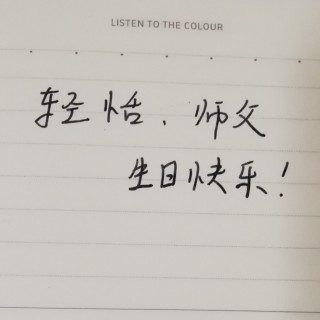 LISTEN TO THE COLOUR
轻恬、师父
生日快乐！